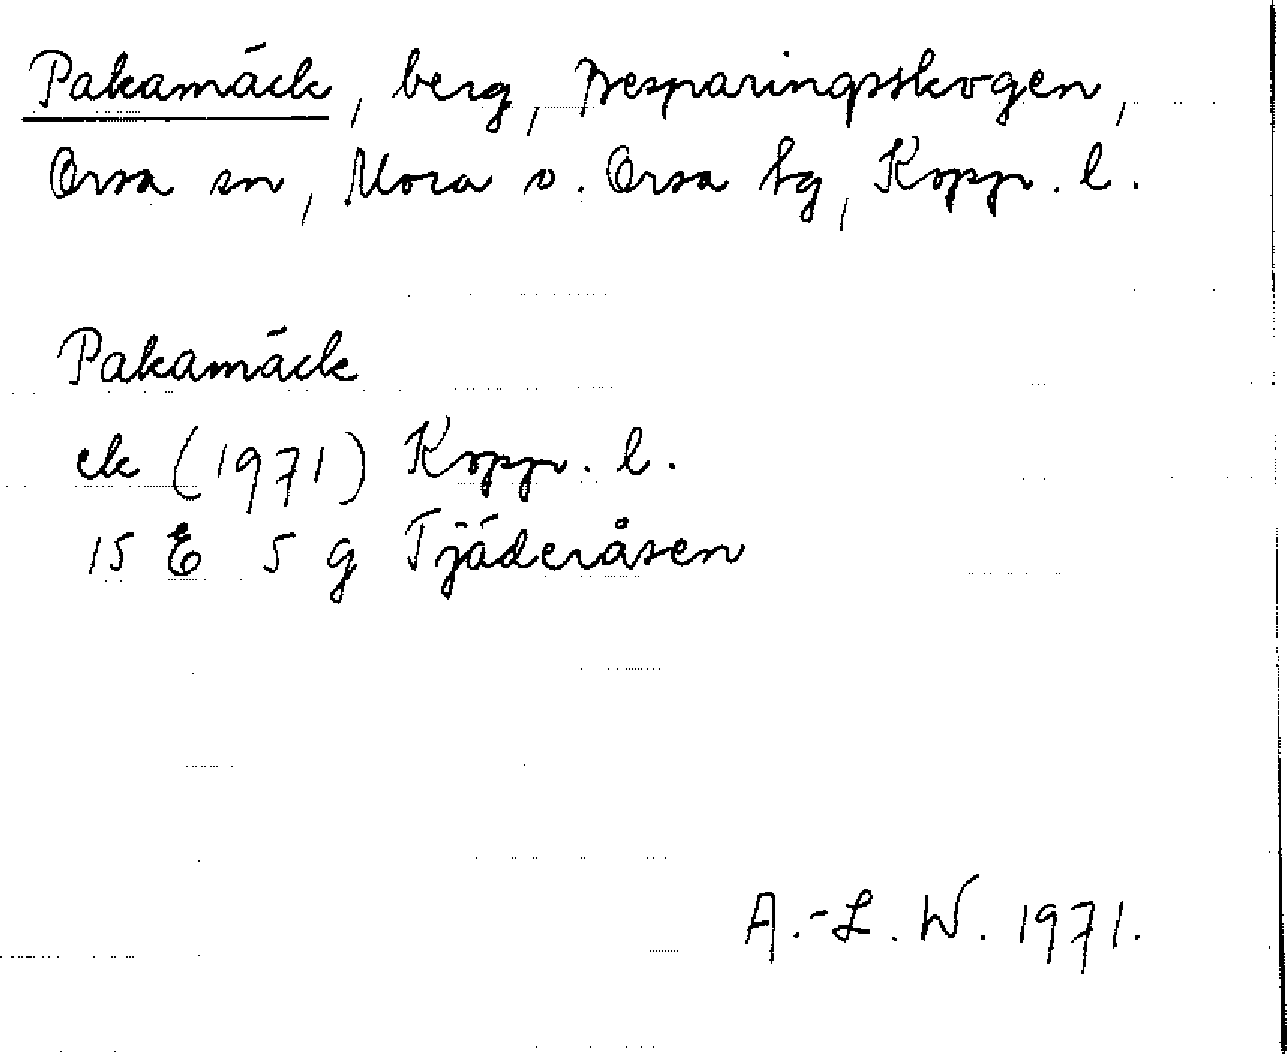 Pakamäck, berg, Besparingsskogen,
Orsa sn, Mora o. Orsa tg, Kopp. l.
Pakamäck
ek (1971) Kopp. l.
15 E 5 g Tjäderåsen
A.-L. W. 1971.